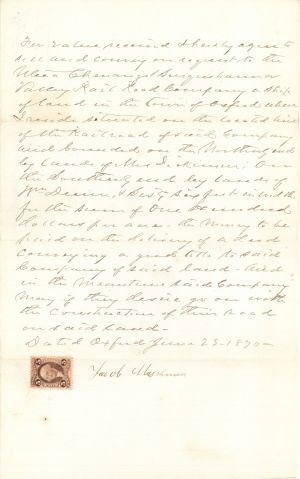 For value received I hereby agree to
sell and convey on request to the
Utica Chenango & Susquehanna
Valley Rail Road Company a strip
of land in the town of Oxford where
I reside situated on the located line
of the Railroad of said Company
and bounded on the North end
by lands of Mrs Dickinson On
the South end by lands of
Wm & Sixty six feet in width
for the sum of One Hundred
dollars per acre the money to be
paid on the delivery of a deed
conveying a good title to said
Company of said land. And
in the meantime said Company
may if they desire go on with
the construction of their road
on said land-
Dated Oxford June 23-1870-
Jacob